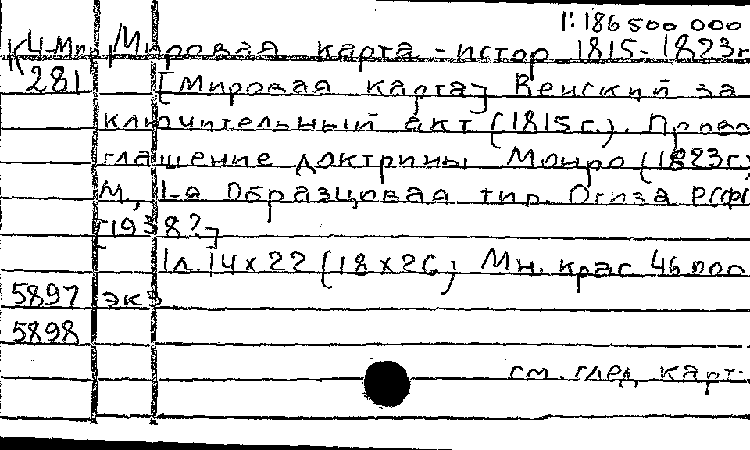 1:186 500 000
К4-Мир Мировая карта - истор 1815-1823г
281 [Мировая карта] Венский за
ключительный акт (1815 г.). Прово
глашение доктрины Монро (1823г)
М., 1-я Образцовая тип. Огиза РСФС
[1938?]
1 л. 14х22 (18х26) Мн. крас 46.000
5897 экз
5898
см. след карт.